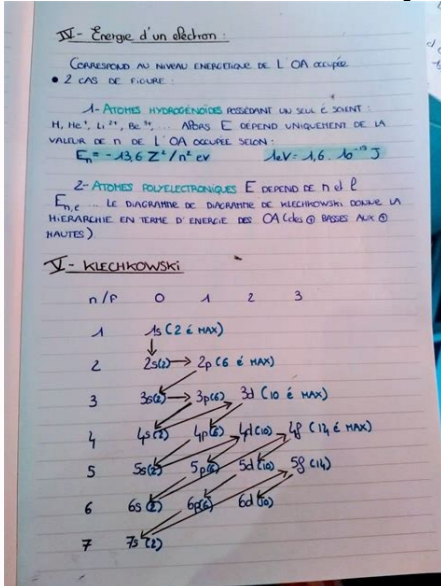 IV - Énergie d'un électron :
CORRESPOND AU NIVEAU ENERGETIQUE DE L'OA occupée
• 2 CAS DE FIGURE :
1- ATOMES HYDROGÉNOÏDES POSSÉDANT UN SEUL é SOIENT :
H, He⁺, Li²⁺, Be³⁺, ... ALORS E DÉPEND UNIQUEMENT DE LA
VALEUR DE n DE L'OA OCCUPÉE SELON :
En = -13,6 Z²/n² ev 1eV = 1,6 . 10⁻¹⁹ J
2- ATOMES POLYELECTRONIQUES E DEPEND DE n et l
En,l ... LE DIAGRAMME DE DIAGRAMME DE KLECHKOWSKI DONNE LA
HIERARCHIE EN TERME D'ENERGIE DES OA (des ⊕ BASSES AUX ⊕
HAUTES)
V - KLECHKOWSKI
n/l 0 1 2 3
1 1s (2 é MAX)
2 2s(2) → 2p (6 é MAX)
3 3s(2) → 3p(6) 3d (10 é MAX)
4 4s(2) 4p(6) 4d(10) 4f (14 é MAX)
5 5s(2) 5p(6) 5d(10) 5f(14)
6 6s(2) 6p(6) 6d(10)
7 7s(2)